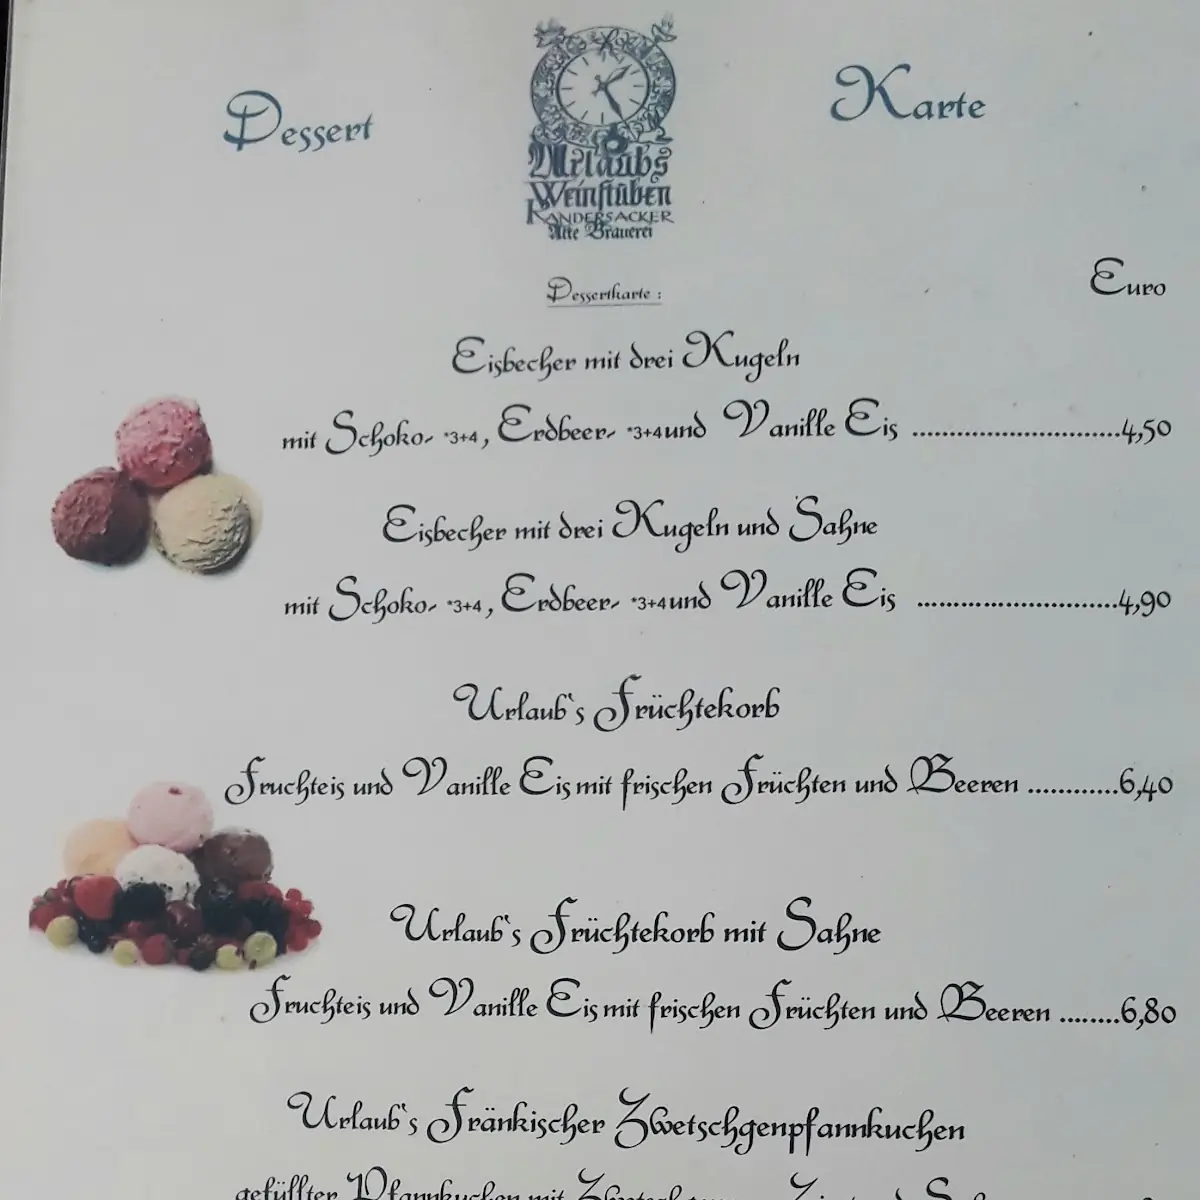 Dessert Karte
Urlaubs
Weinstuben
RANDERSACKER
Alte Brauerei
Euro
Dessertkarte :
Eisbecher mit drei Kugeln
mit Schoko- *3+4, Erdbeer- *3+4und Vanille Eis ............................4,50
Eisbecher mit drei Kugeln und Sahne
mit Schoko- *3+4, Erdbeer- *3+4und Vanille Eis ...........................4,90
Urlaub's Früchtekorb
Fruchteis und Vanille Eis mit frischen Früchten und Beeren ............6,40
Urlaub's Früchtekorb mit Sahne
Fruchteis und Vanille Eis mit frischen Früchten und Beeren ........6,80
Urlaub's Fränkischer Zwetschgenpfannkuchen
gefüllter Pfannkuchen mit